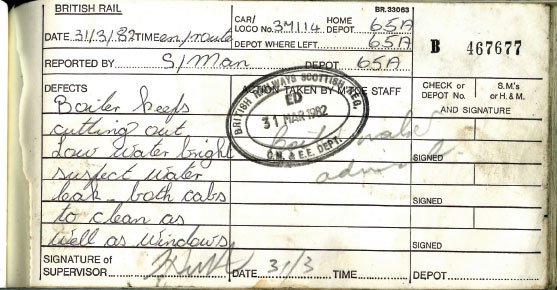 BRITISH RAIL BR.33063
DATE 31/3/82 TIME en/route CAR/ LOCO No. 37114 HOME DEPOT 65A
DEPOT WHERE LEFT 65A B 467677
REPORTED BY S/Man DEPOT 65A
DEFECTS ACTION TAKEN BY M.T.CE STAFF CHECK or DEPOT No. S.M's or H. & M.
AND SIGNATURE
Boiler keeps
cutting out
Low water bright
suspect water
leak both cabs
to clean as
well as windows
BRITISH RAILWAYS SCOTTISH REG.
ED
31 MAR 1982
C.M. & E.E. DEPT.
SIGNED
SIGNED
SIGNED
SIGNATURE of SUPERVISOR DATE 31/3 TIME DEPOT